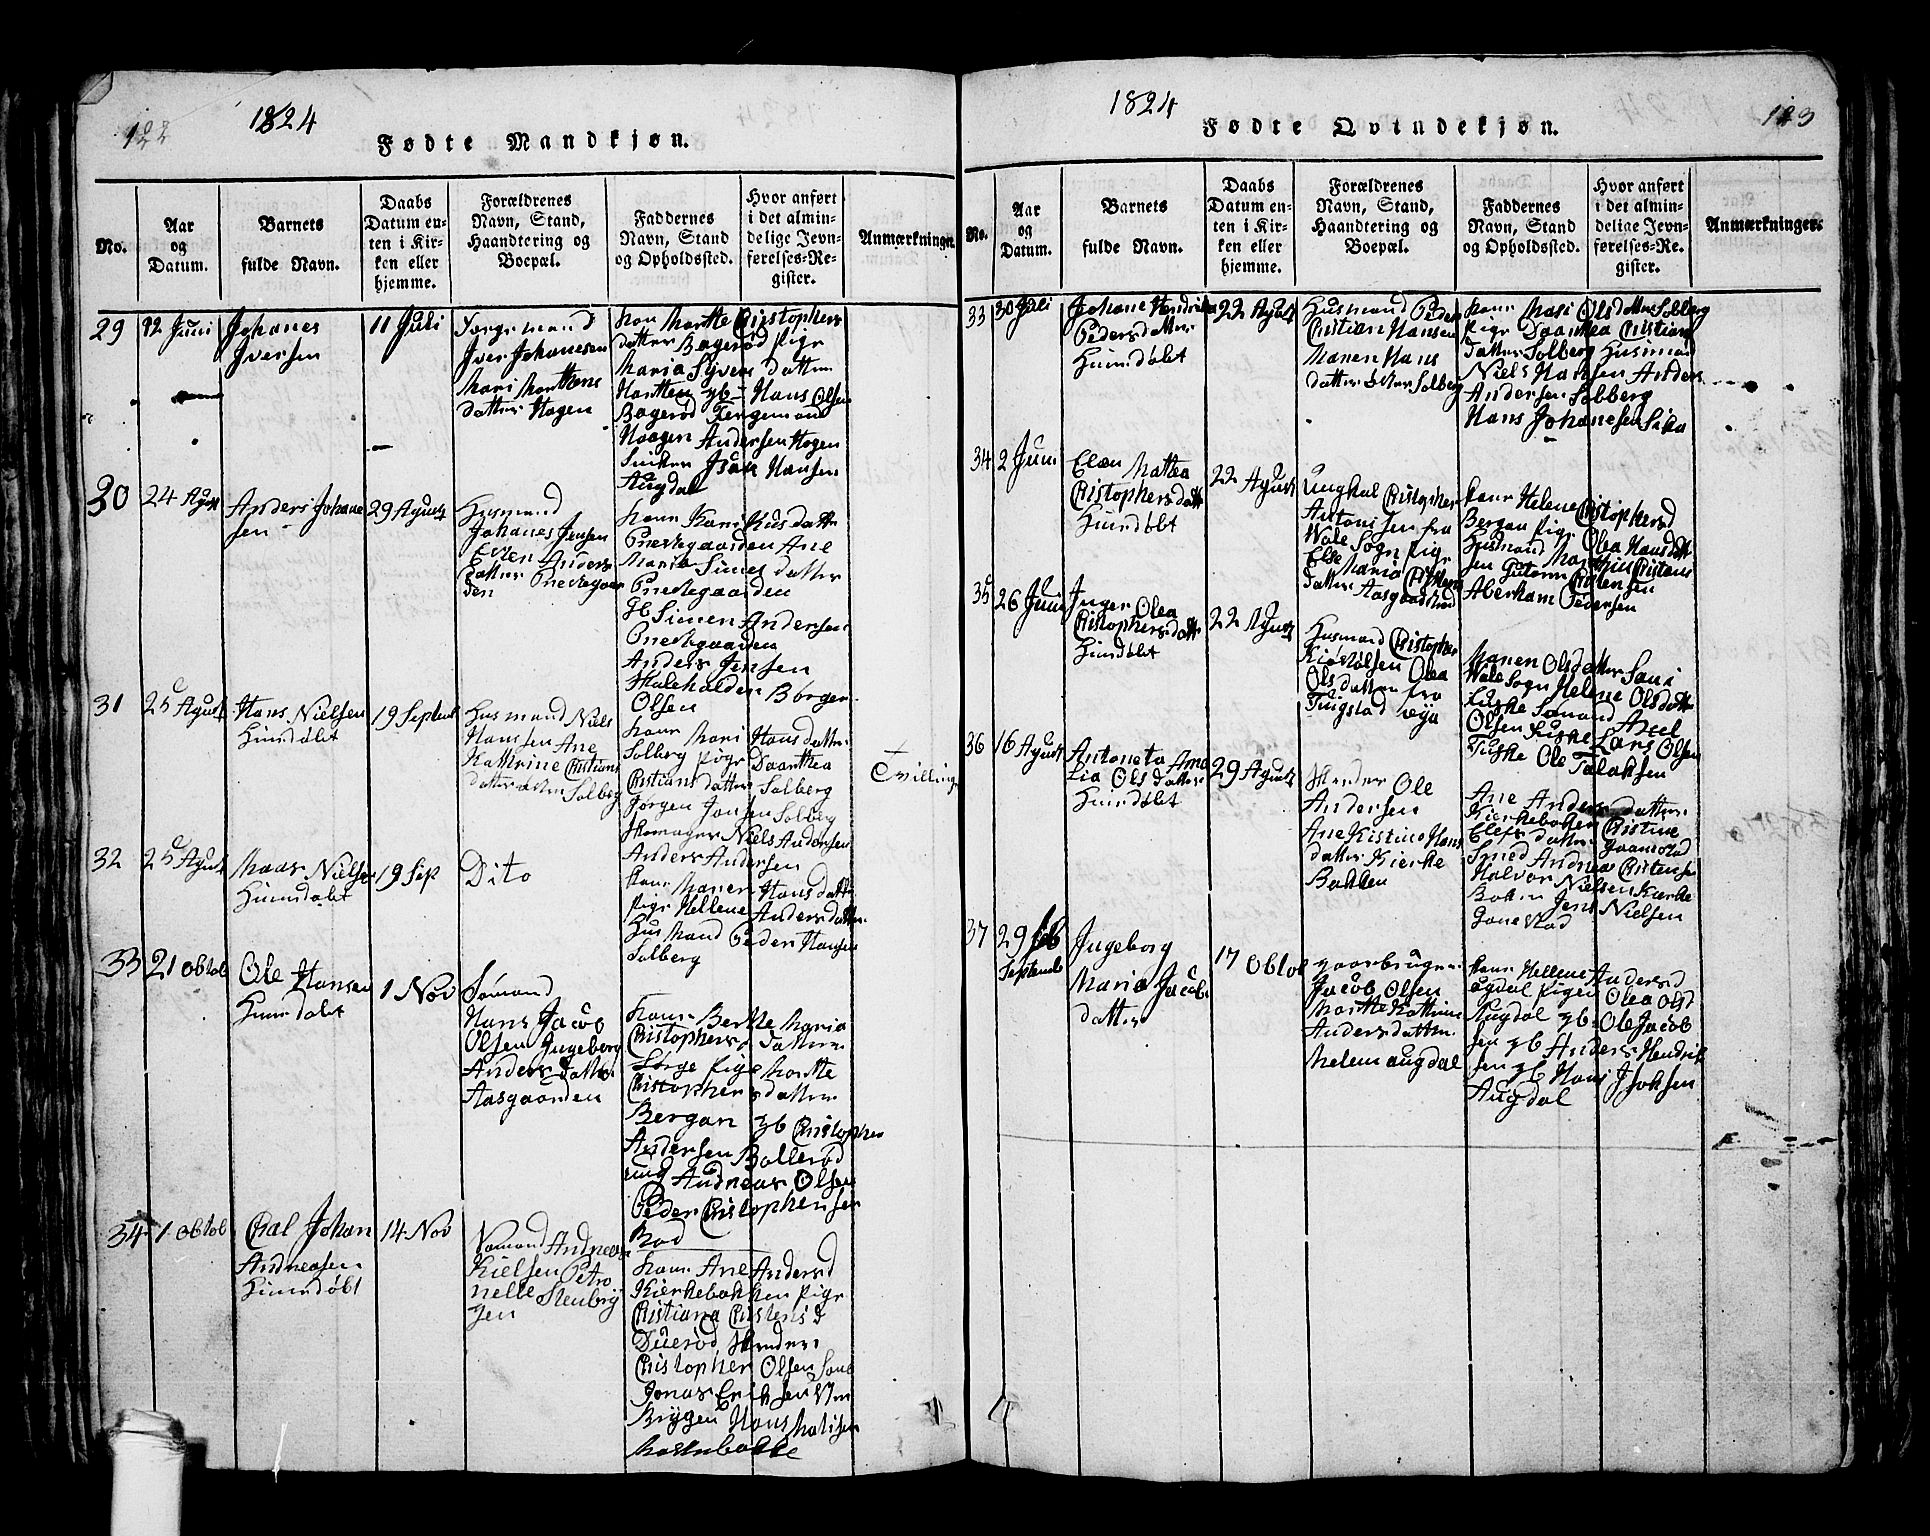 122
1824
Fødte Mandkjøn.
No.
Aar
og
Datum.
Barnets
fulde Navn.
Daabs
Datum en-
ten i Kir-
ken eller
hjemme.
Forældrenes
Navn, Stand,
Haandtering og
Boepæl.
Faddernes
Navn, Stand
og Opholdssted.
Hvor anført
i det almin-
delige Jevn-
førelses-Re-
gister.
Anmærkninger.
29
12 Juni
Johanes
Iversen
11 Juli
Iver Johanesen
Mari Mortens
datter Hagen
Kone Marthe Cristophers
datter Bagerød Pige
Maria Syvers datter
Hans Olsen
Bagerød Fergemand
Haagen Andersen Hogen
Isak Hansen
Augdal
30
24 Agust
Anders Johane
sen
29 Agust
Husmand
Johanes Jensen
Anders
datter Prestegaar
den
Kone Kari
Prestegaarden Ane
Maria Simes datter
Prestegaarden
Simen Andersen
Prestegaarden
Anders Jensen
Skoleholder Børger
Olsen
31
25 Agust
Hans Nielsen
Hiemdøbt
19 Septem
Husmand Niels
Hanssen Ane
Kathrine Cristians
datter Solberg
Kone Mari Hans datter
Solberg pige Daarthea
Cristians datter Solberg
Jørgen Jonsen Solberg
Skomager Niels Andersen
Anders Andersen
Tvilling
32
25 Agust
Maas Nielsen
Hiemdøbt
19 Sep
Dito
Kone Maren Hans datter
Pige Hellene Anders datter
Husmand Peder Hansen
Solberg
33
21 Obtob
Ole Hansen
Hiemdøbt
1 Nov
Sømand
Hans Jacob
Olsen Ingeborg
Anders datter
Aasgaarden
Kone Berthe Maria
Cristophers datter
Sørge Pige Marthe
Cristophers datter
Bergan gb Cristopher
Andersen Bollerød
ung Andreas Olsen
Peder Cristophersen
Rød
34
1 Obtob
Carl Johan
Andreasen
Hiemdøbt
14 Nov
Sømand Andreas
Kielsen Petro
nelle Stenbry
gen
Kone Ane Andersd
Kierkebakken Pige
Cristiana Cristensd
Duerød
Cristopher Olsen
Jonas Eriksen
Brygen Hans Matisen

1824
Fødte Qvindekjøn.
123
No.
Aar
og
Datum.
Barnets
fulde Navn.
Daabs
Datum en-
ten i Kir-
ken eller
hjemme.
Forældrenes
Navn, Stand,
Haandtering og
Boepæl.
Faddernes
Navn, Stand
og Opholdssted.
Hvor anført
i det almin-
delige Jevn-
førelses-Re-
gister.
Anmærkninger.
33
30 Juli
Johane Hendrika
Peders datter
Hiemdøbt
22 Agust
Husmand Peder
Cristian Hansen
Maren Hans
datter øster Solberg
Kone Mari Olsdatter Solberg
Pige Daarthea Cristians
datter Solberg Husmand
Niels Hansen Anders
Andersen Solberg
Hans Johanesen
34
2 Juni
Elen Mattea
Cristophers datt
Hiemdøbt
22 Agust
Ungkal Cristopher
Antonisen fra
Wale Sogn Pige
Else Maria
datter Aasgaardstrand
Kone Helene Cristophersd
Bergan Pige Olea Hansdatt
Husmand
Aberham Pedersen
35
26 Juni
Inger Olea
Cristophersdatt
Hiemdøbt
22 Agust
Husmand Cristopher
Kiøstolsen Olea
Olsdatter fra
Tingstad eye
Maren Olsdatter
Wale Sogn Helene Olsdatt
Fuske Sømand Axel
Olsen Fuske Lars Olsen
Fuske Ole Talaksen
36
16 Agust
Antoneta Ama
lia Ols datter
Hiemdøbt
29 Agust
Ole
Andersen
Ane Kistine Hans
datter Kierke
Bakken
Ane Anders datter
Kierkebaken Cristine
Smed Andrea Cristense
Halvor Nielsen Kierke
Baken Jens Nielsen
37
29
Septemb
Ingeborg
Maria Jacobs
datter
17 Obtob
gaarbruger
Jacob Olsen
Marthe Katrine
Andersdatter
Melem augdal
Kone Hellene Andersd
augdal Pigen Olea Olsd
Augdal gb Ole Jacob
sen gb Anders Hendrik
sen gb Hans Isaksen
Augdal